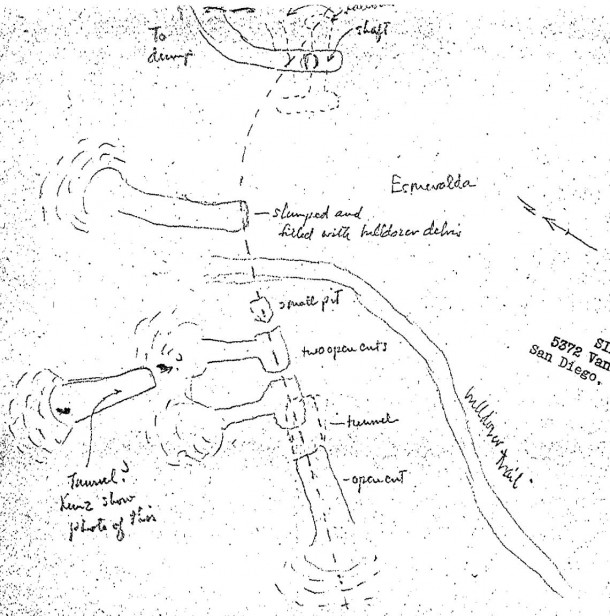 To
dump
shaft
Esmeralda
slumped and
filled with bulldozer debris
small pit
two open cuts
5372 Van
San Diego.
tunnel
bulldozer trail
open cut
Tunnel?
show
photo of this